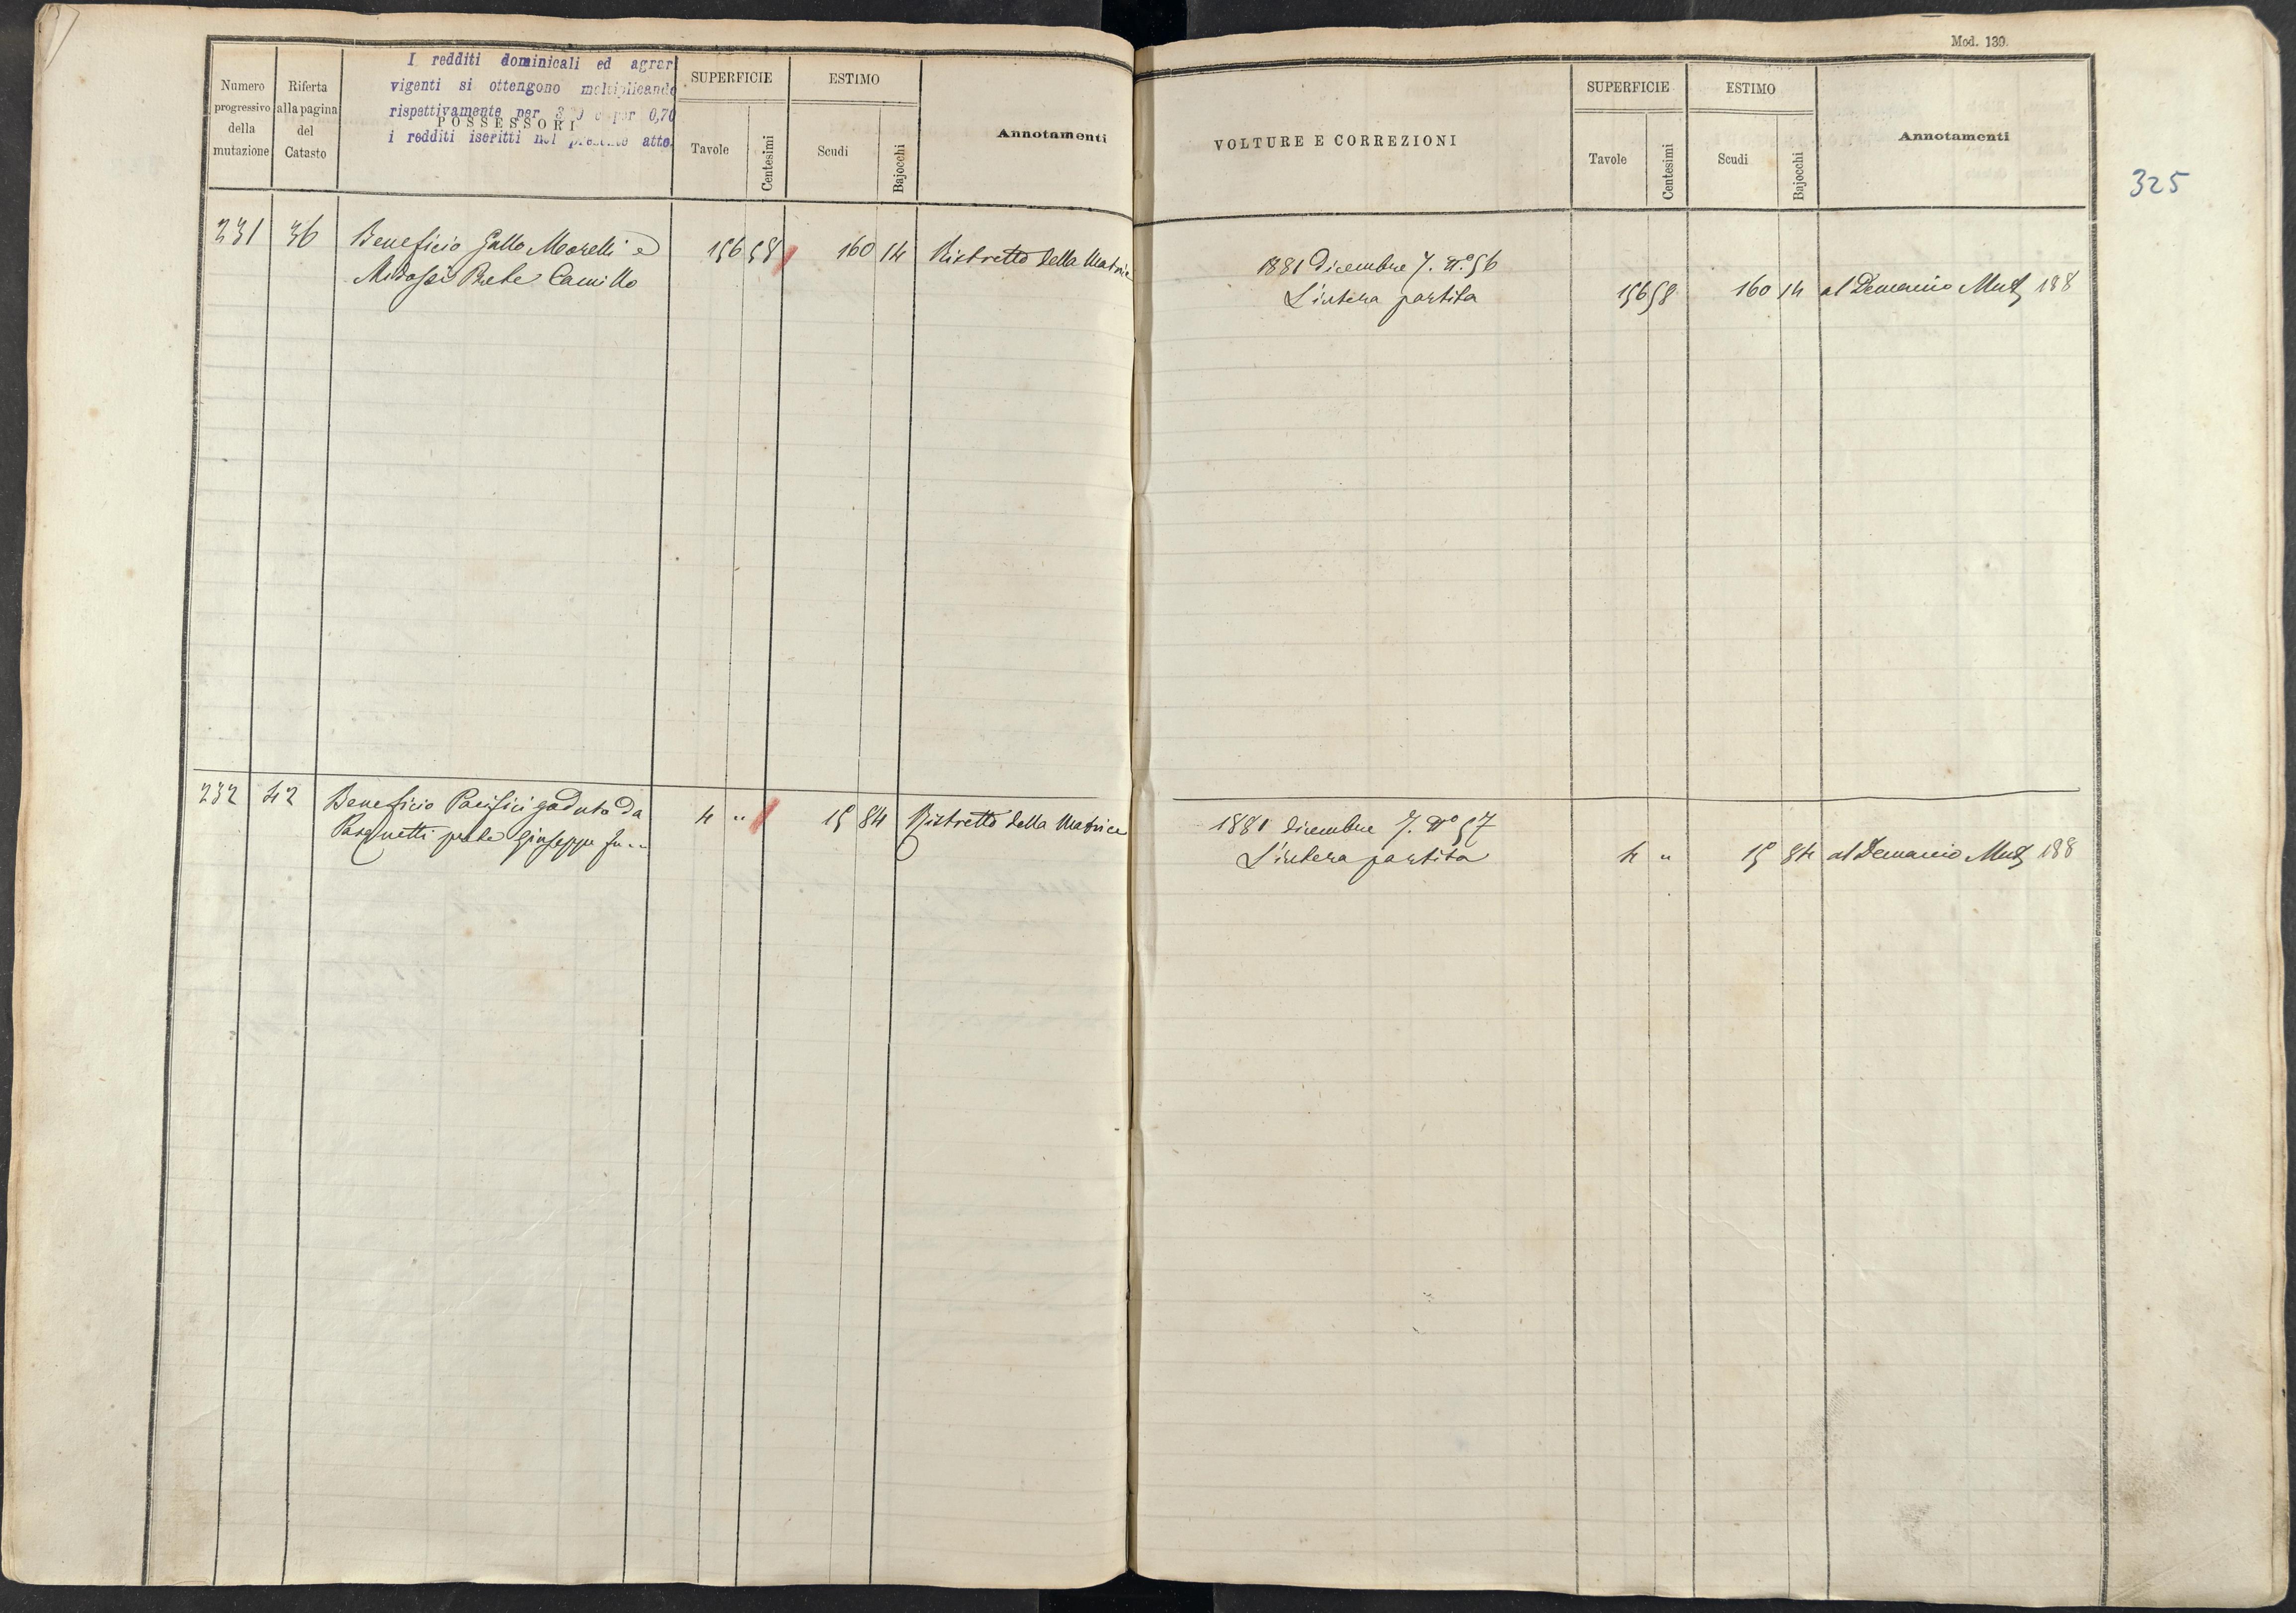 Numero progressivo della mutazione
Riferta alla pagina del Catasto
POSSESSORI
I redditi dominicali ed agrar
vigenti si ottengono moltiplicando
rispettivamente per
0,70
i redditi iscritti nel presente atto.
SUPERFICIE
Tavole
Centesimi
ESTIMO
Scudi
Bajocchi
Annotamenti
231 36 Beneficio Gallo Morelli e 156 58 160 14 Ristretto della Matrice
Prete Camillo
232 42 Beneficio Pacifici goduto da 4 " 15 84 Ristretto della Matrice
Pasquetti prete Giuseppe fu..
Mod. 139.
VOLTURE E CORREZIONI
SUPERFICIE
Tavole
Centesimi
ESTIMO
Scudi
Bajocchi
Annotamenti
325
1881 Dicembre 7. N.º 56
L'intera partita 156 58 160 14 al Demanio Mut 188
1881 dicembre 7. Nº 57
L'intera partita 4 " 15 84 al Demanio Mut 188